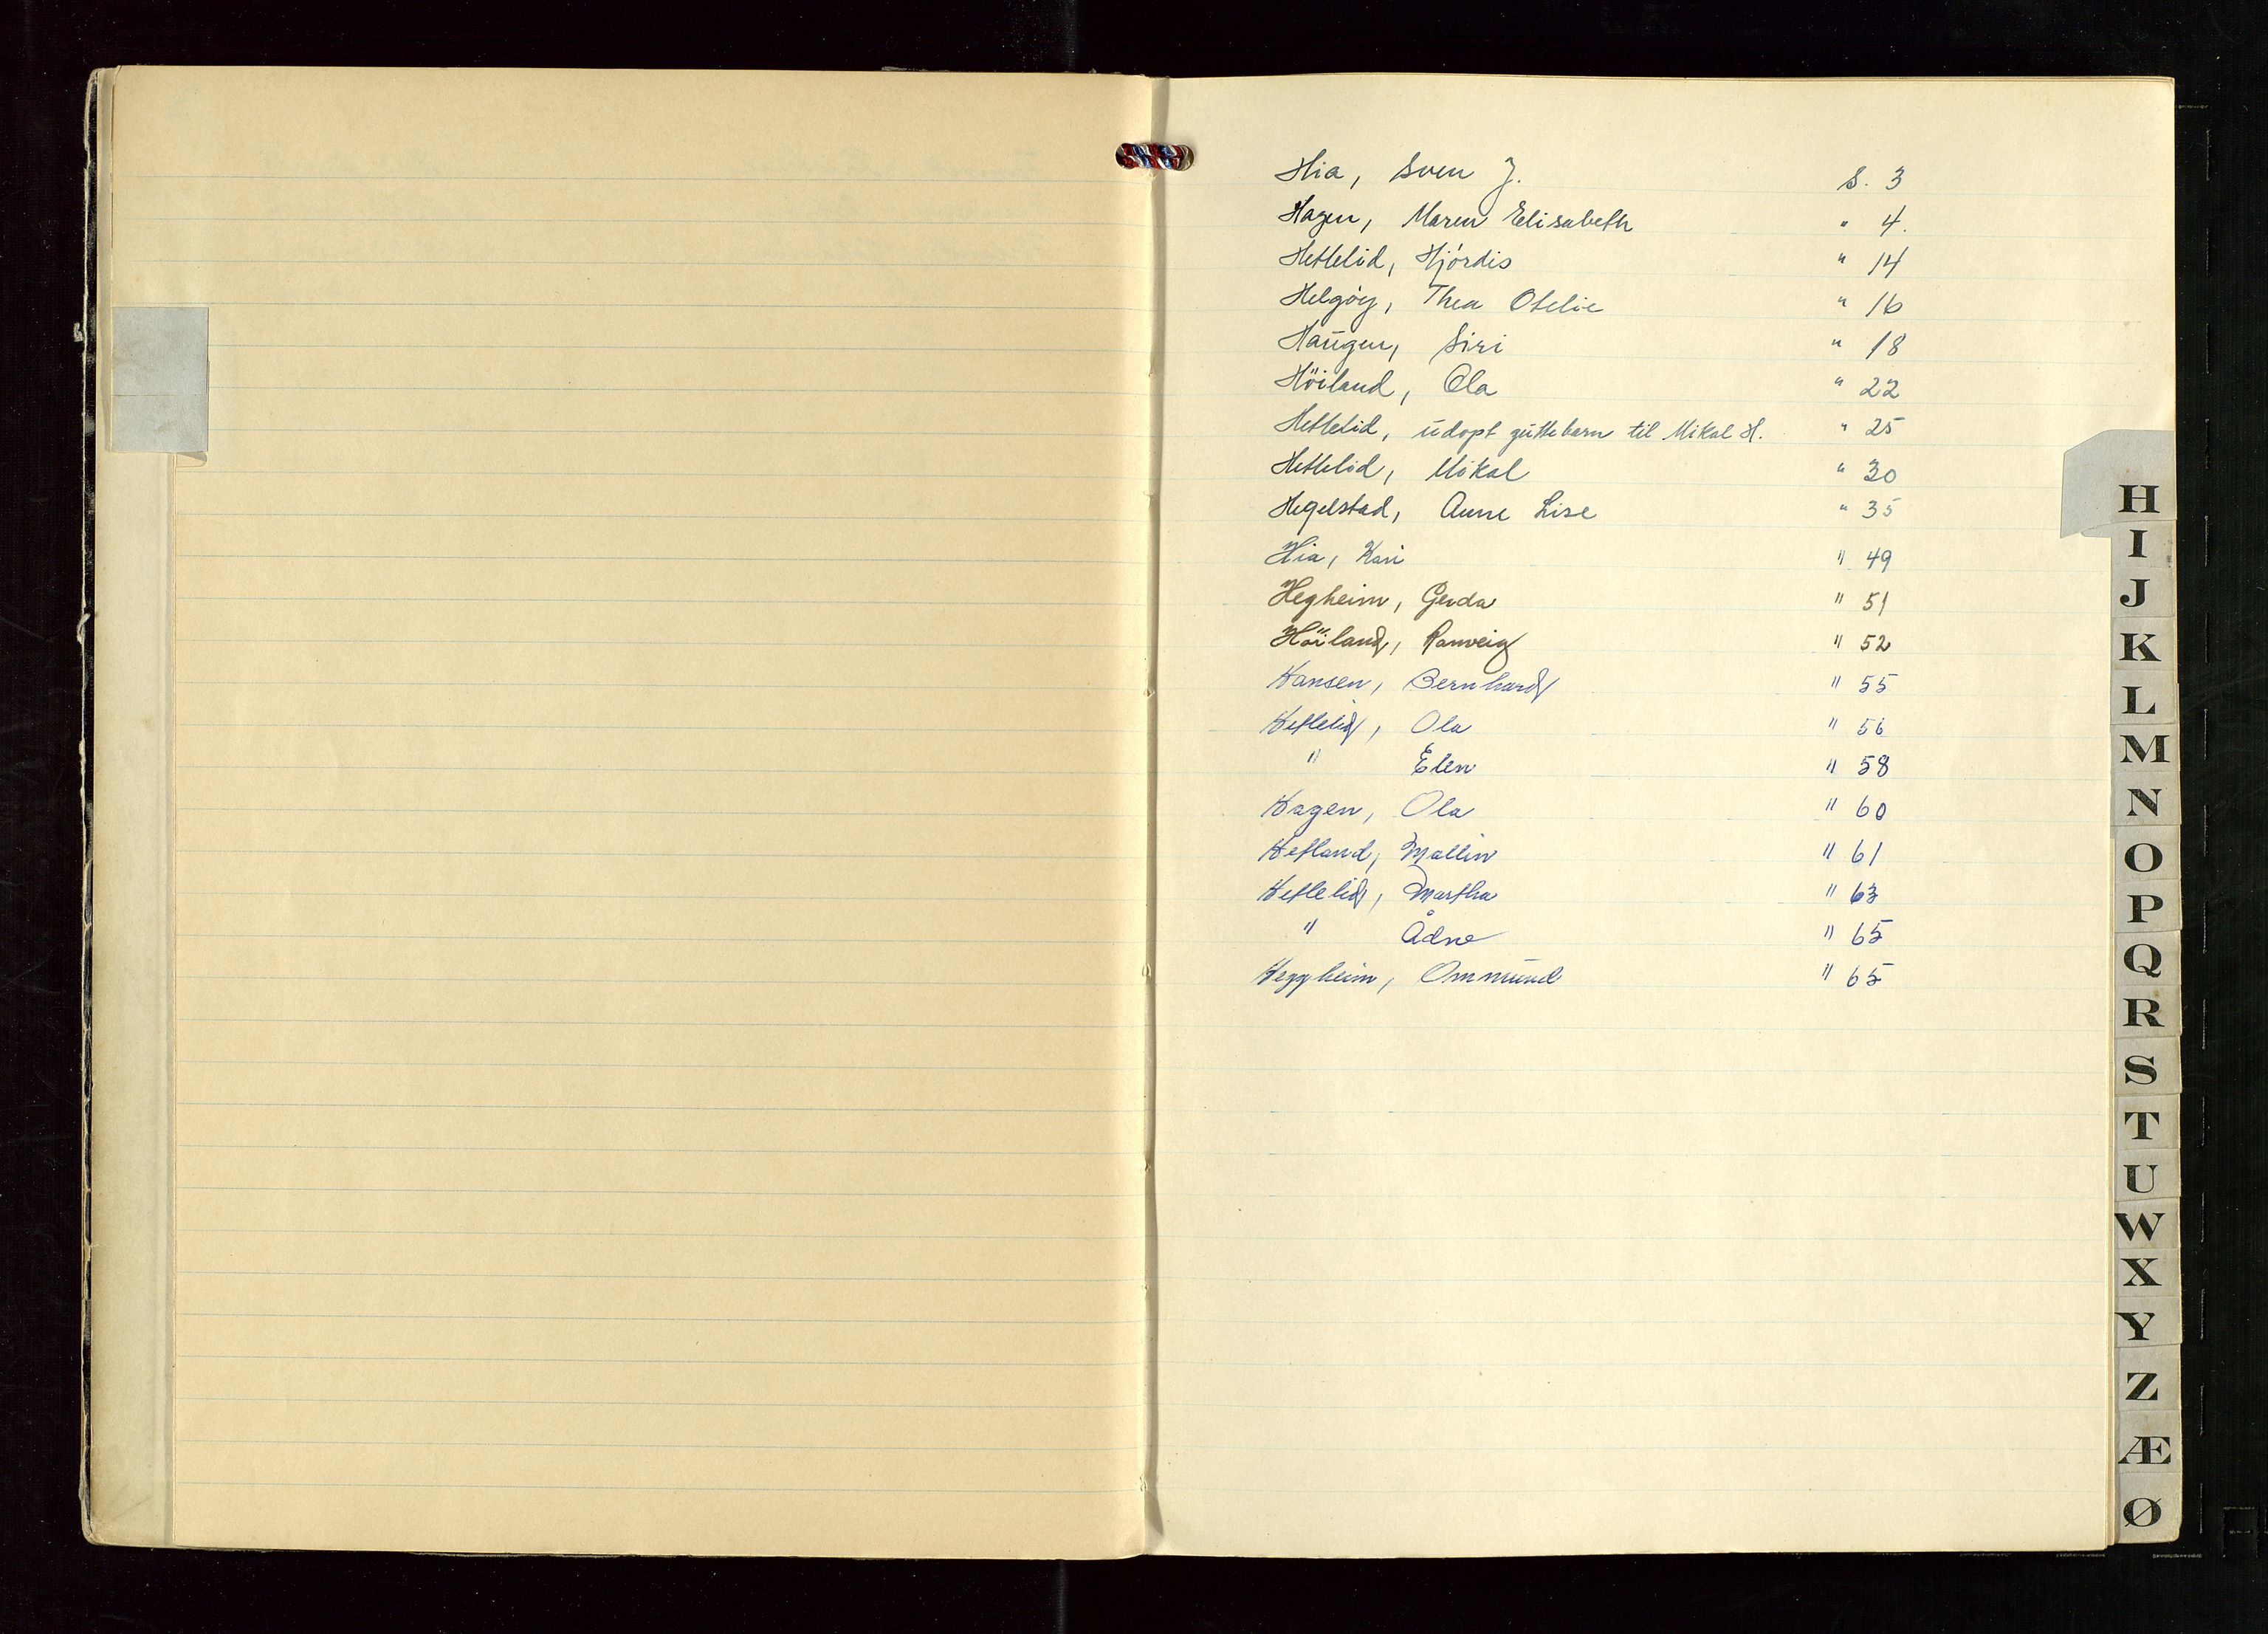 Hia, Sven J. S. 3
Hagen, Maren Elisabeth " 4.
Hetlelid, Hjördis " 14
Helgöy, Thea Otelie " 16
Haugen, Siri " 18
Höiland, Ola " 22
Hetlelid, udøpt guttebarn til Mikal H. " 25
Hetlelid, Mikal " 30
Hegelstad, Anne Lise " 35
Hia, Kari " 49
Hegheim, Gerda " 51
Höiland, Ranveig " 52
Hansen, Bernhard " 55
Hetlelid, Ola " 56
" Elen " 58
Hagen, Ola " 60
Hetland, Mallin " 61
Hetlelid, Martha " 63
" Ådne " 65
Heggheim, Ommund " 65
H
I
J
K
L
M
N
O
P
Q
R
S
T
U
W
X
Y
Z
Æ
Ø